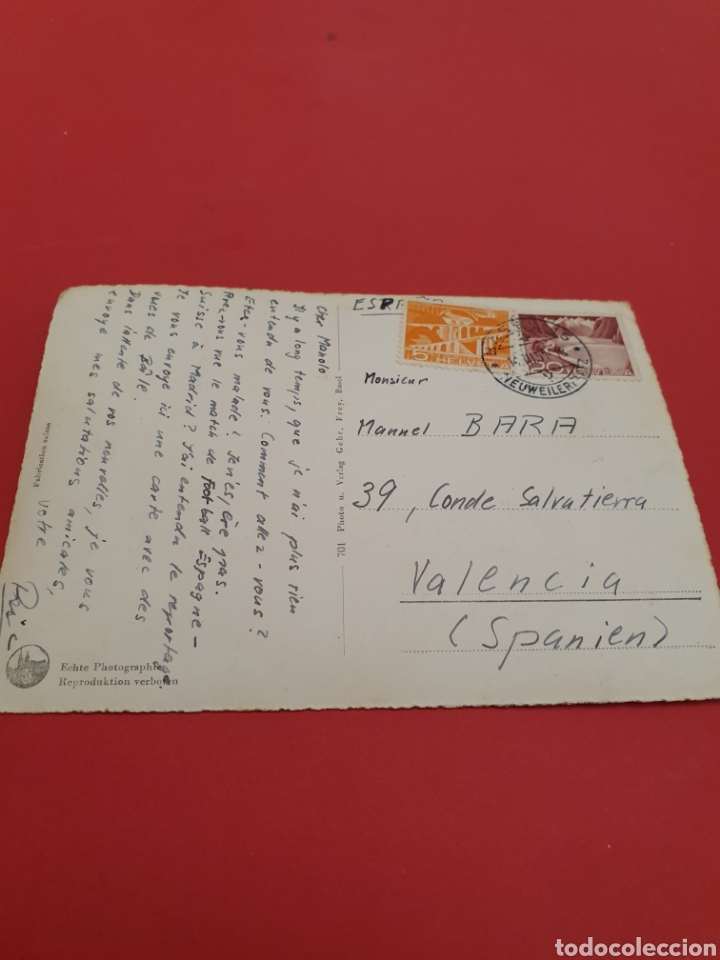 Cher Manolo
Il y a long temps, que je n'ai plus rien
entendu de vous. Comment allez-vous?
Etes-vous malade? Je n'espère pas.
Avez-vous vue le match de Football Espagne-
Suisse à Madrid? J'ai entendu le reportage.
Je vous envoye ici une carte avec des
vues de Bâle.
Dans l'attente de vos nouvelles, je vous
envoye mes salutations amicales,
Votre
Fabrication suisse
Echte Photographie
Reproduktion verboten
701 Photo u. Verlag Gebr.
HELVETIA
10
HELVETIA
NEUWEILERPLATZ
Monsieur
Mannel BARA
39, Conde Salvatierra
Valencia
(Spanien)
todocoleccion